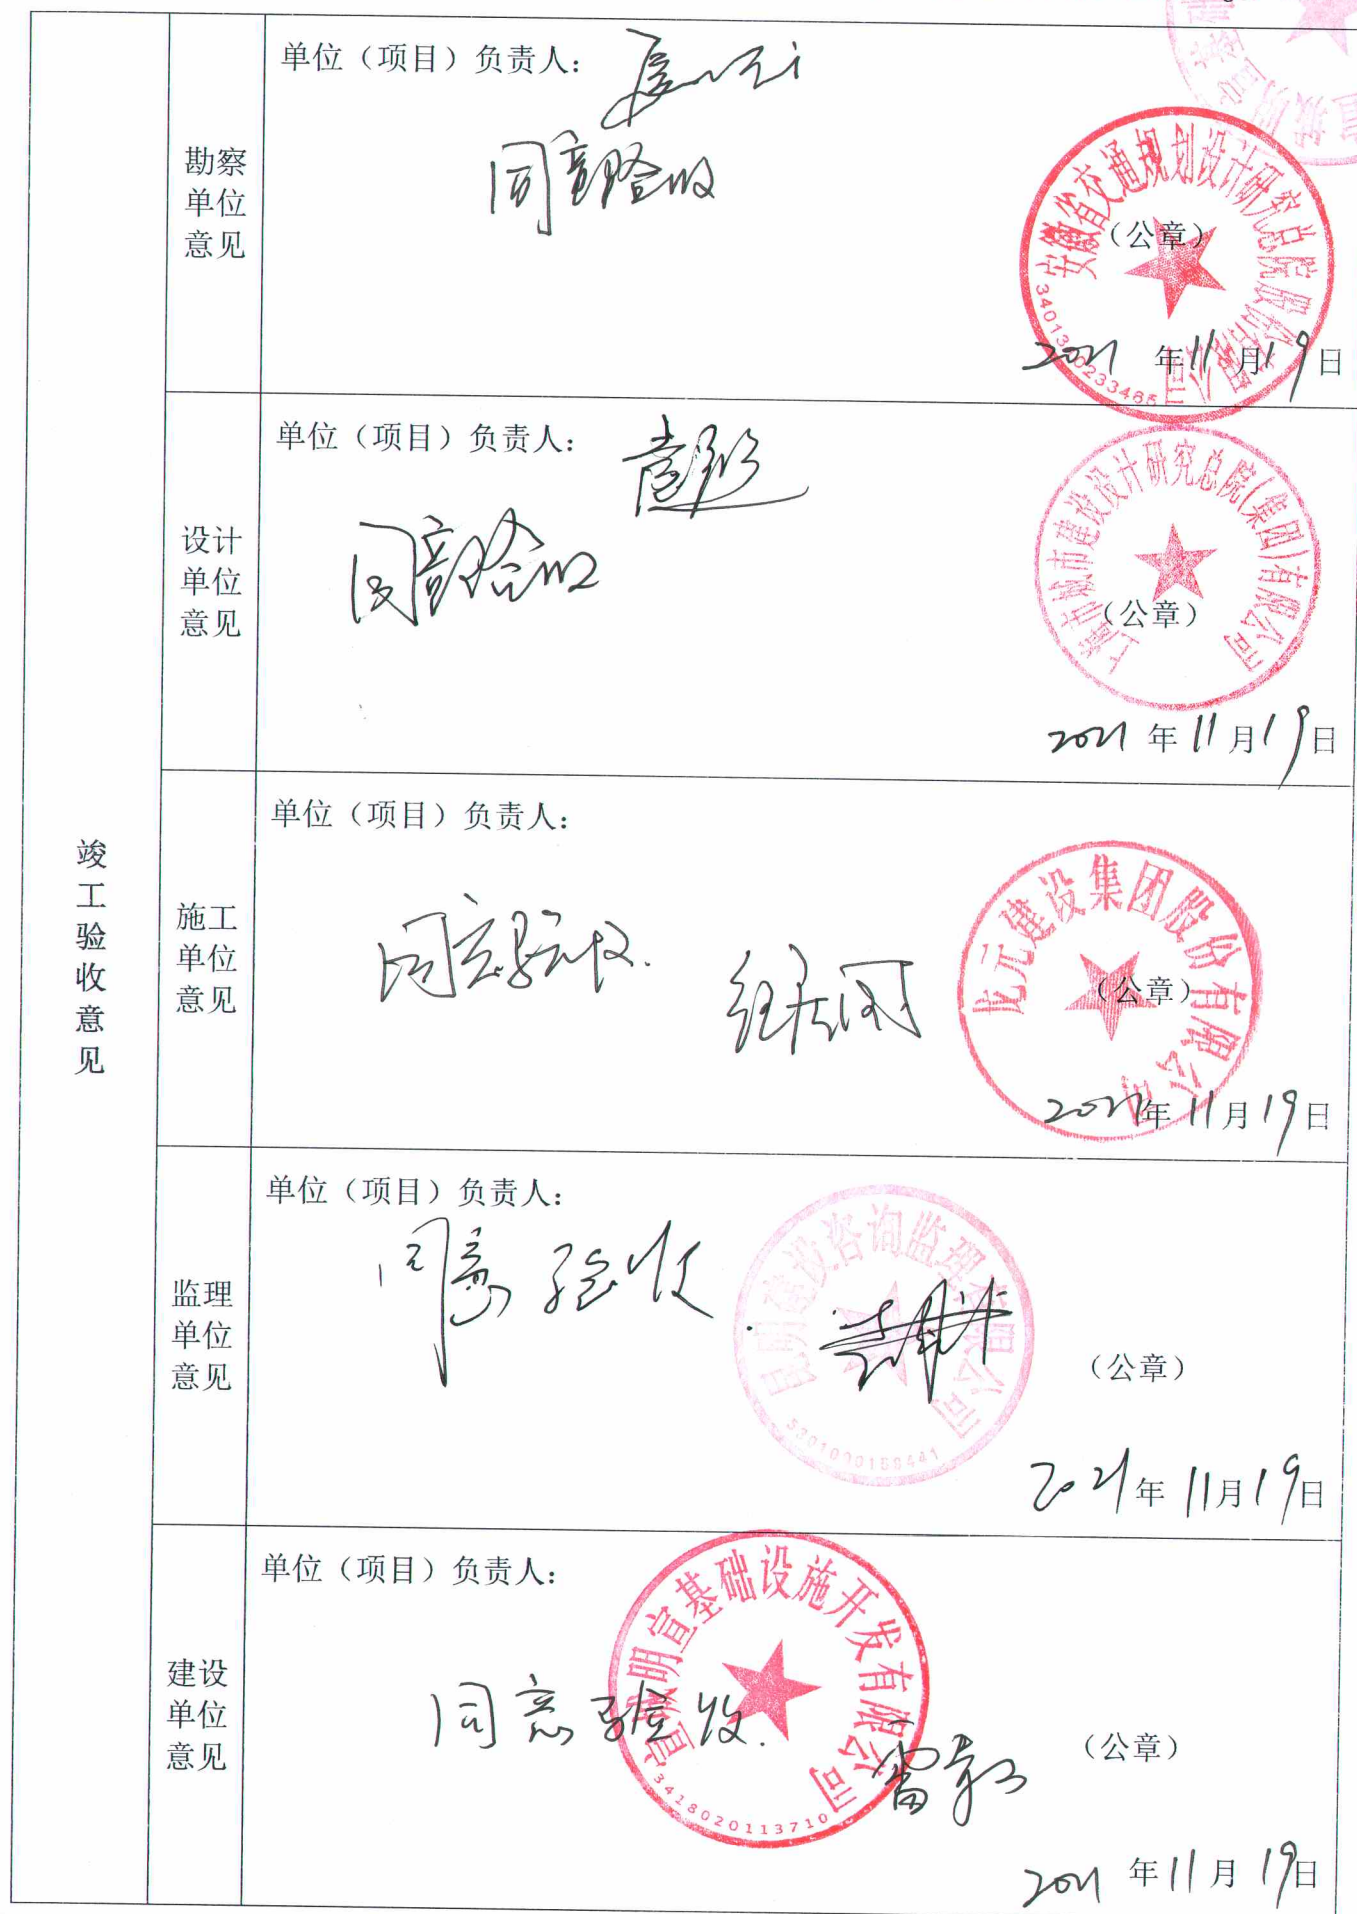 竣工验收意见
勘察单位意见
单位（项目）负责人：
同意验收
安徽省交通规划设计研究总院股份有限公司
（公章）
2021年11月19日
设计单位意见
单位（项目）负责人：
同意验收
上海市城市建设设计研究总院(集团)有限公司
（公章）
2021年11月19日
施工单位意见
单位（项目）负责人：
同意验收.
龙元建设集团股份有限公司
（公章）
2021年11月19日
监理单位意见
单位（项目）负责人：
同意验收.
昆明建设咨询监理有限公司
（公章）
2021年11月19日
建设单位意见
单位（项目）负责人：
宣城明宣基础设施开发有限公司
同意验收.
3418020113710
（公章）
2021年11月19日